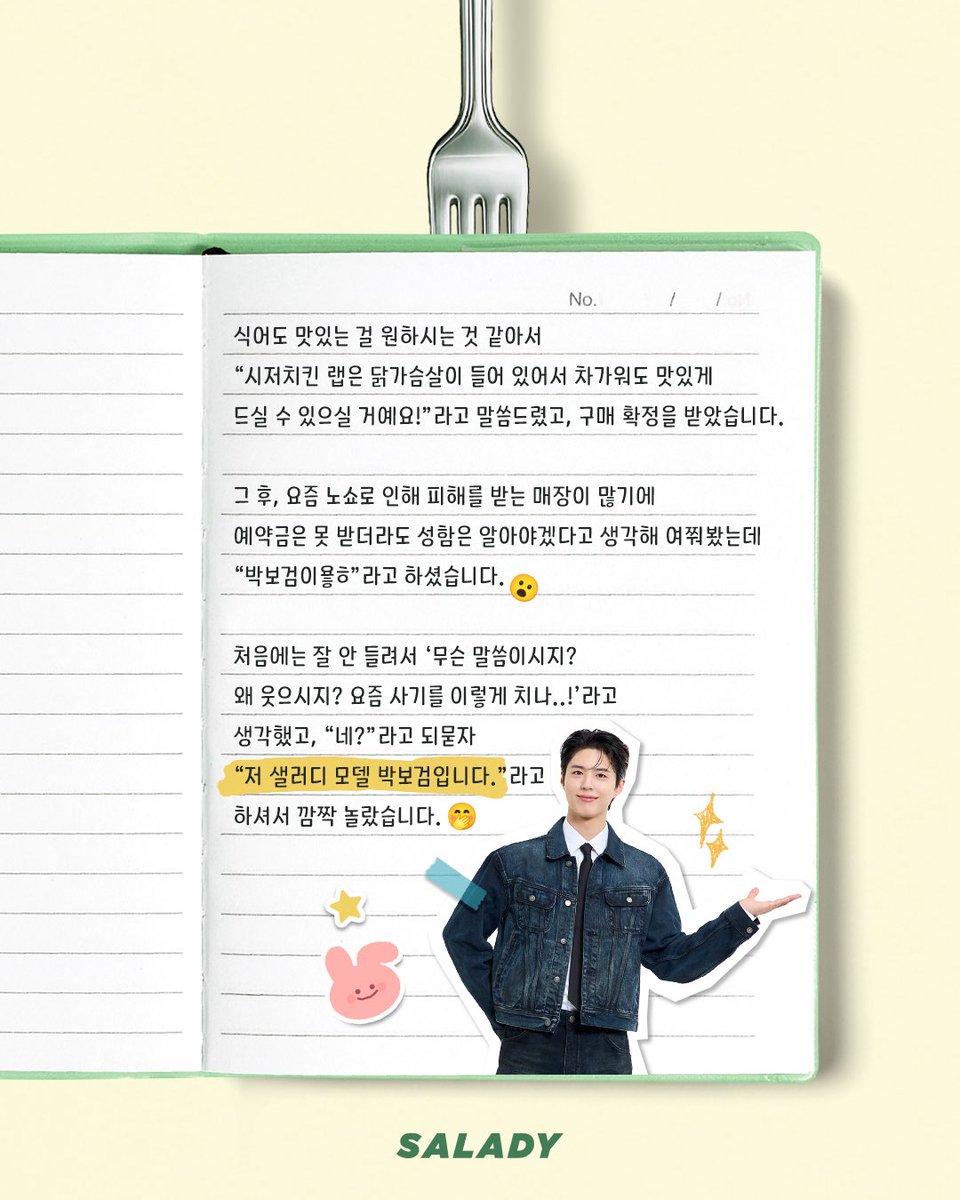 No. / /
식어도 맛있는 걸 원하시는 것 같아서
“시저치킨 랩은 닭가슴살이 들어 있어서 차가워도 맛있게
드실 수 있으실 거예요!”라고 말씀드렸고, 구매 확정을 받았습니다.
그 후, 요즘 노쇼로 인해 피해를 받는 매장이 많기에
예약금은 못 받더라도 성함은 알아야겠다고 생각해 여쭤봤는데
“박보검이욯ㅎ”라고 하셨습니다. 😮
처음에는 잘 안 들려서 ‘무슨 말씀이시지?
왜 웃으시지? 요즘 사기를 이렇게 치나..!’라고
생각했고, “네?”라고 되묻자
“저 샐러디 모델 박보검입니다.”라고
하셔서 깜짝 놀랐습니다. 🤭
SALADY